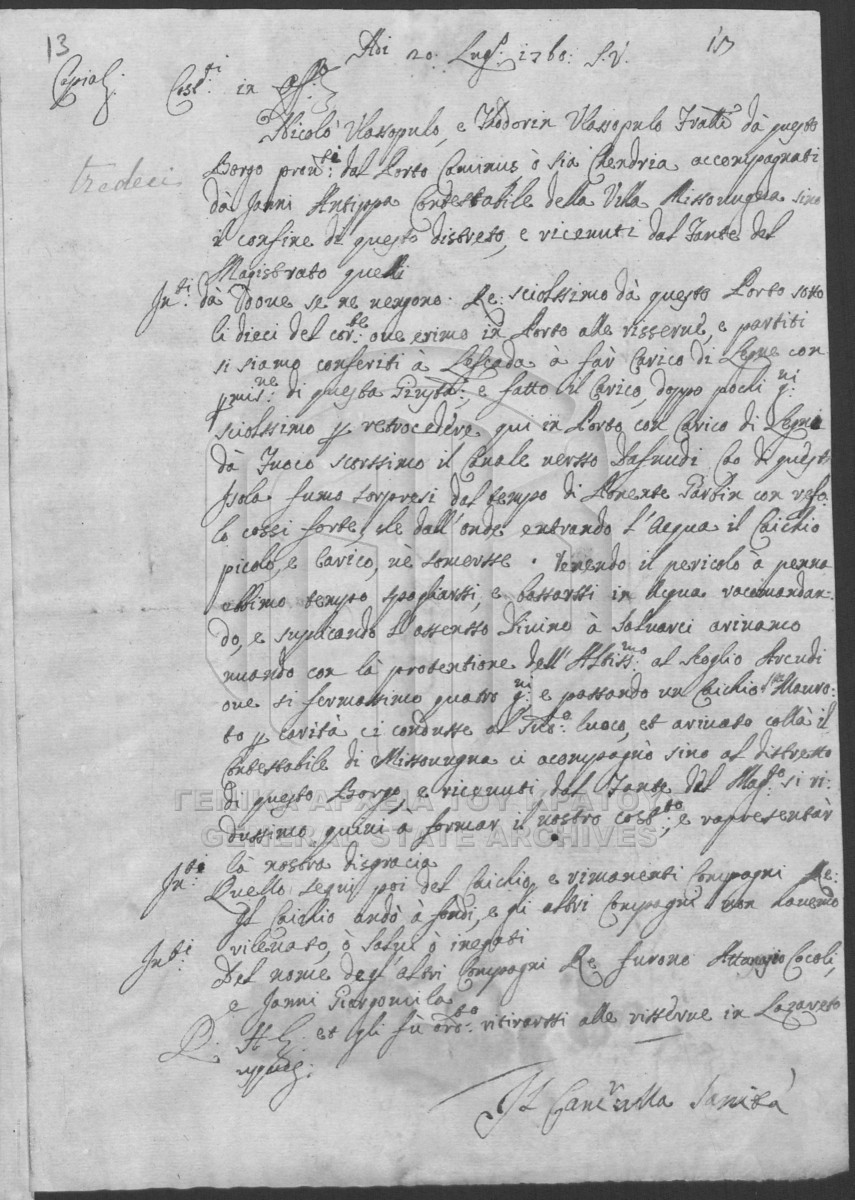 13
Adi 20: Lug.º 1760: S.V.
13
Cost.ti in
Nicolò Vlassopulo, e Thodorin Vlassopulo Fratti dà questo
tredeci
Borgo pron.ti dal Porto Caminus, ò sia Chendria accompagnati
dà Janni Antippa Contestabile della Villa Missonugna sino
il confine di questo distreto, e ricevuti dal Fante del
Magistrato quelli
Int.ti dà Done se ne vengono. Re: sciolssimo dà questo Porto sotto
li dieci del cor.te ove erimo in Porto alle risserve, e partiti
si siamo conferiti à Leftada à fàr Carico di Legne con
di questa Giusta:, e fatto il Carico, doppo pochi g.ni
sciolssimo p retrocedere qui in Porto con Carico di Legni
dà Fuoco scorssimo il Canale versso Dafnudi Cao di questa
Isola fumo sorpresi dal tempo di Ponente Garbin con
lo cossi forte, che dall'onde entrando l'Acqua il Caichio
picolo, e Carico, nè somersse. Venendo il pericolo à penna
ebbimo tempo spogliarssi, e bottarssi in Acqua raccomandan:
do, e suplicando l'assensso Divino à Salvarci arivamo
nuando con là protentione dell'Altiss.mo al Scoglio Arcudi
ove si fermassimo quatro g.ni e passando un Caichio S.ta Mauro:
to p carità ci condusse al sud.º luoco, et arivato collà il
Contestabile di Missonugna ci acompagnò sino al distretto
di questo Borgo, e ricevuti dal Fante del Mag.to si ri:
dussimo quivi à formar il nostro cost.to, e rapresentàr
là nostra disgracia
ΓΕΝΙΚΑ ΑΡΧΕΙΑ ΤΟΥ ΚΡΑΤΟΥΣ
GENERAL STATE ARCHIVES
Int.ti Quello segui poi del Caichio, e rimanenti Compagni Re:
Il Caichio andò à fondi, e gli altri Compagni non havemo
rilevato, ò salvi ò inegati
Int.ti Del nome degl'altri Compagni Re furono Attanasio Cocoli,
e Janni Giargomila
et gli fù ord.to ritirarssi alle risserve in Lazareto
Il Canc.r alla Sanità